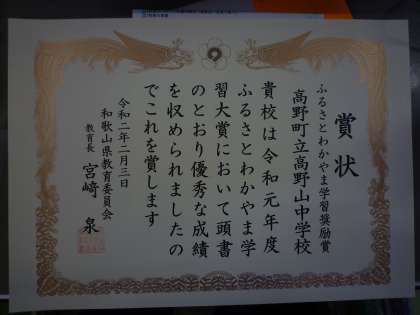 賞状
ふるさとわかやま学習奨励賞
高野町立高野山中学校
貴校は令和元年度
ふるさとわかやま学
習大賞において頭書
のとおり優秀な成績
を収められましたの
でこれを賞します
令和二年二月三日
和歌山県教育委員会
教育長 宮﨑 泉